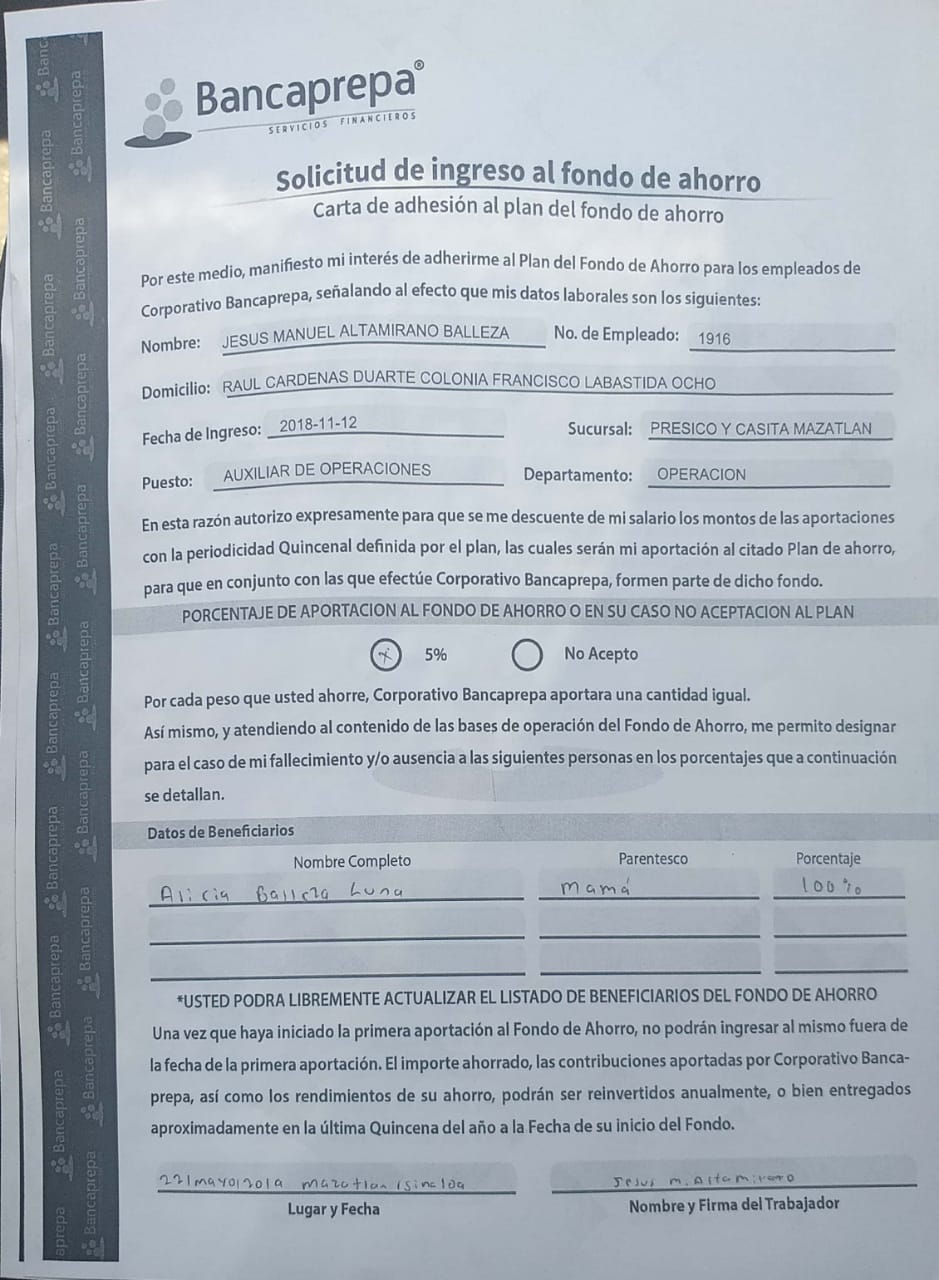 Bancaprepa®
SERVICIOS FINANCIEROS
Solicitud de ingreso al fondo de ahorro
Carta de adhesión al plan del fondo de ahorro
Por este medio, manifiesto mi interés de adherirme al Plan del Fondo de Ahorro para los empleados de
Corporativo Bancaprepa, señalando al efecto que mis datos laborales son los siguientes:
Nombre: JESUS MANUEL ALTAMIRANO BALLEZA No. de Empleado: 1916
Domicilio: RAUL CARDENAS DUARTE COLONIA FRANCISCO LABASTIDA OCHO
Fecha de Ingreso: 2018-11-12 Sucursal: PRESICO Y CASITA MAZATLAN
Puesto: AUXILIAR DE OPERACIONES Departamento: OPERACION
En esta razón autorizo expresamente para que se me descuente de mi salario los montos de las aportaciones
con la periodicidad Quincenal definida por el plan, las cuales serán mi aportación al citado Plan de ahorro,
para que en conjunto con las que efectúe Corporativo Bancaprepa, formen parte de dicho fondo.
PORCENTAJE DE APORTACION AL FONDO DE AHORRO O EN SU CASO NO ACEPTACION AL PLAN
x 5% No Acepto
Por cada peso que usted ahorre, Corporativo Bancaprepa aportara una cantidad igual.
Así mismo, y atendiendo al contenido de las bases de operación del Fondo de Ahorro, me permito designar
para el caso de mi fallecimiento y/o ausencia a las siguientes personas en los porcentajes que a continuación
se detallan.
Datos de Beneficiarios
Nombre Completo Parentesco Porcentaje
Alicia Balleza Luna Mamá 100%
*USTED PODRA LIBREMENTE ACTUALIZAR EL LISTADO DE BENEFICIARIOS DEL FONDO DE AHORRO
Una vez que haya iniciado la primera aportación al Fondo de Ahorro, no podrán ingresar al mismo fuera de
la fecha de la primera aportación. El importe ahorrado, las contribuciones aportadas por Corporativo Banca-
prepa, así como los rendimientos de su ahorro, podrán ser reinvertidos anualmente, o bien entregados
aproximadamente en la última Quincena del año a la Fecha de su inicio del Fondo.
22/mayo/2019 mazatlan/sinaloa Jesus M. Altamirano
Lugar y Fecha Nombre y Firma del Trabajador